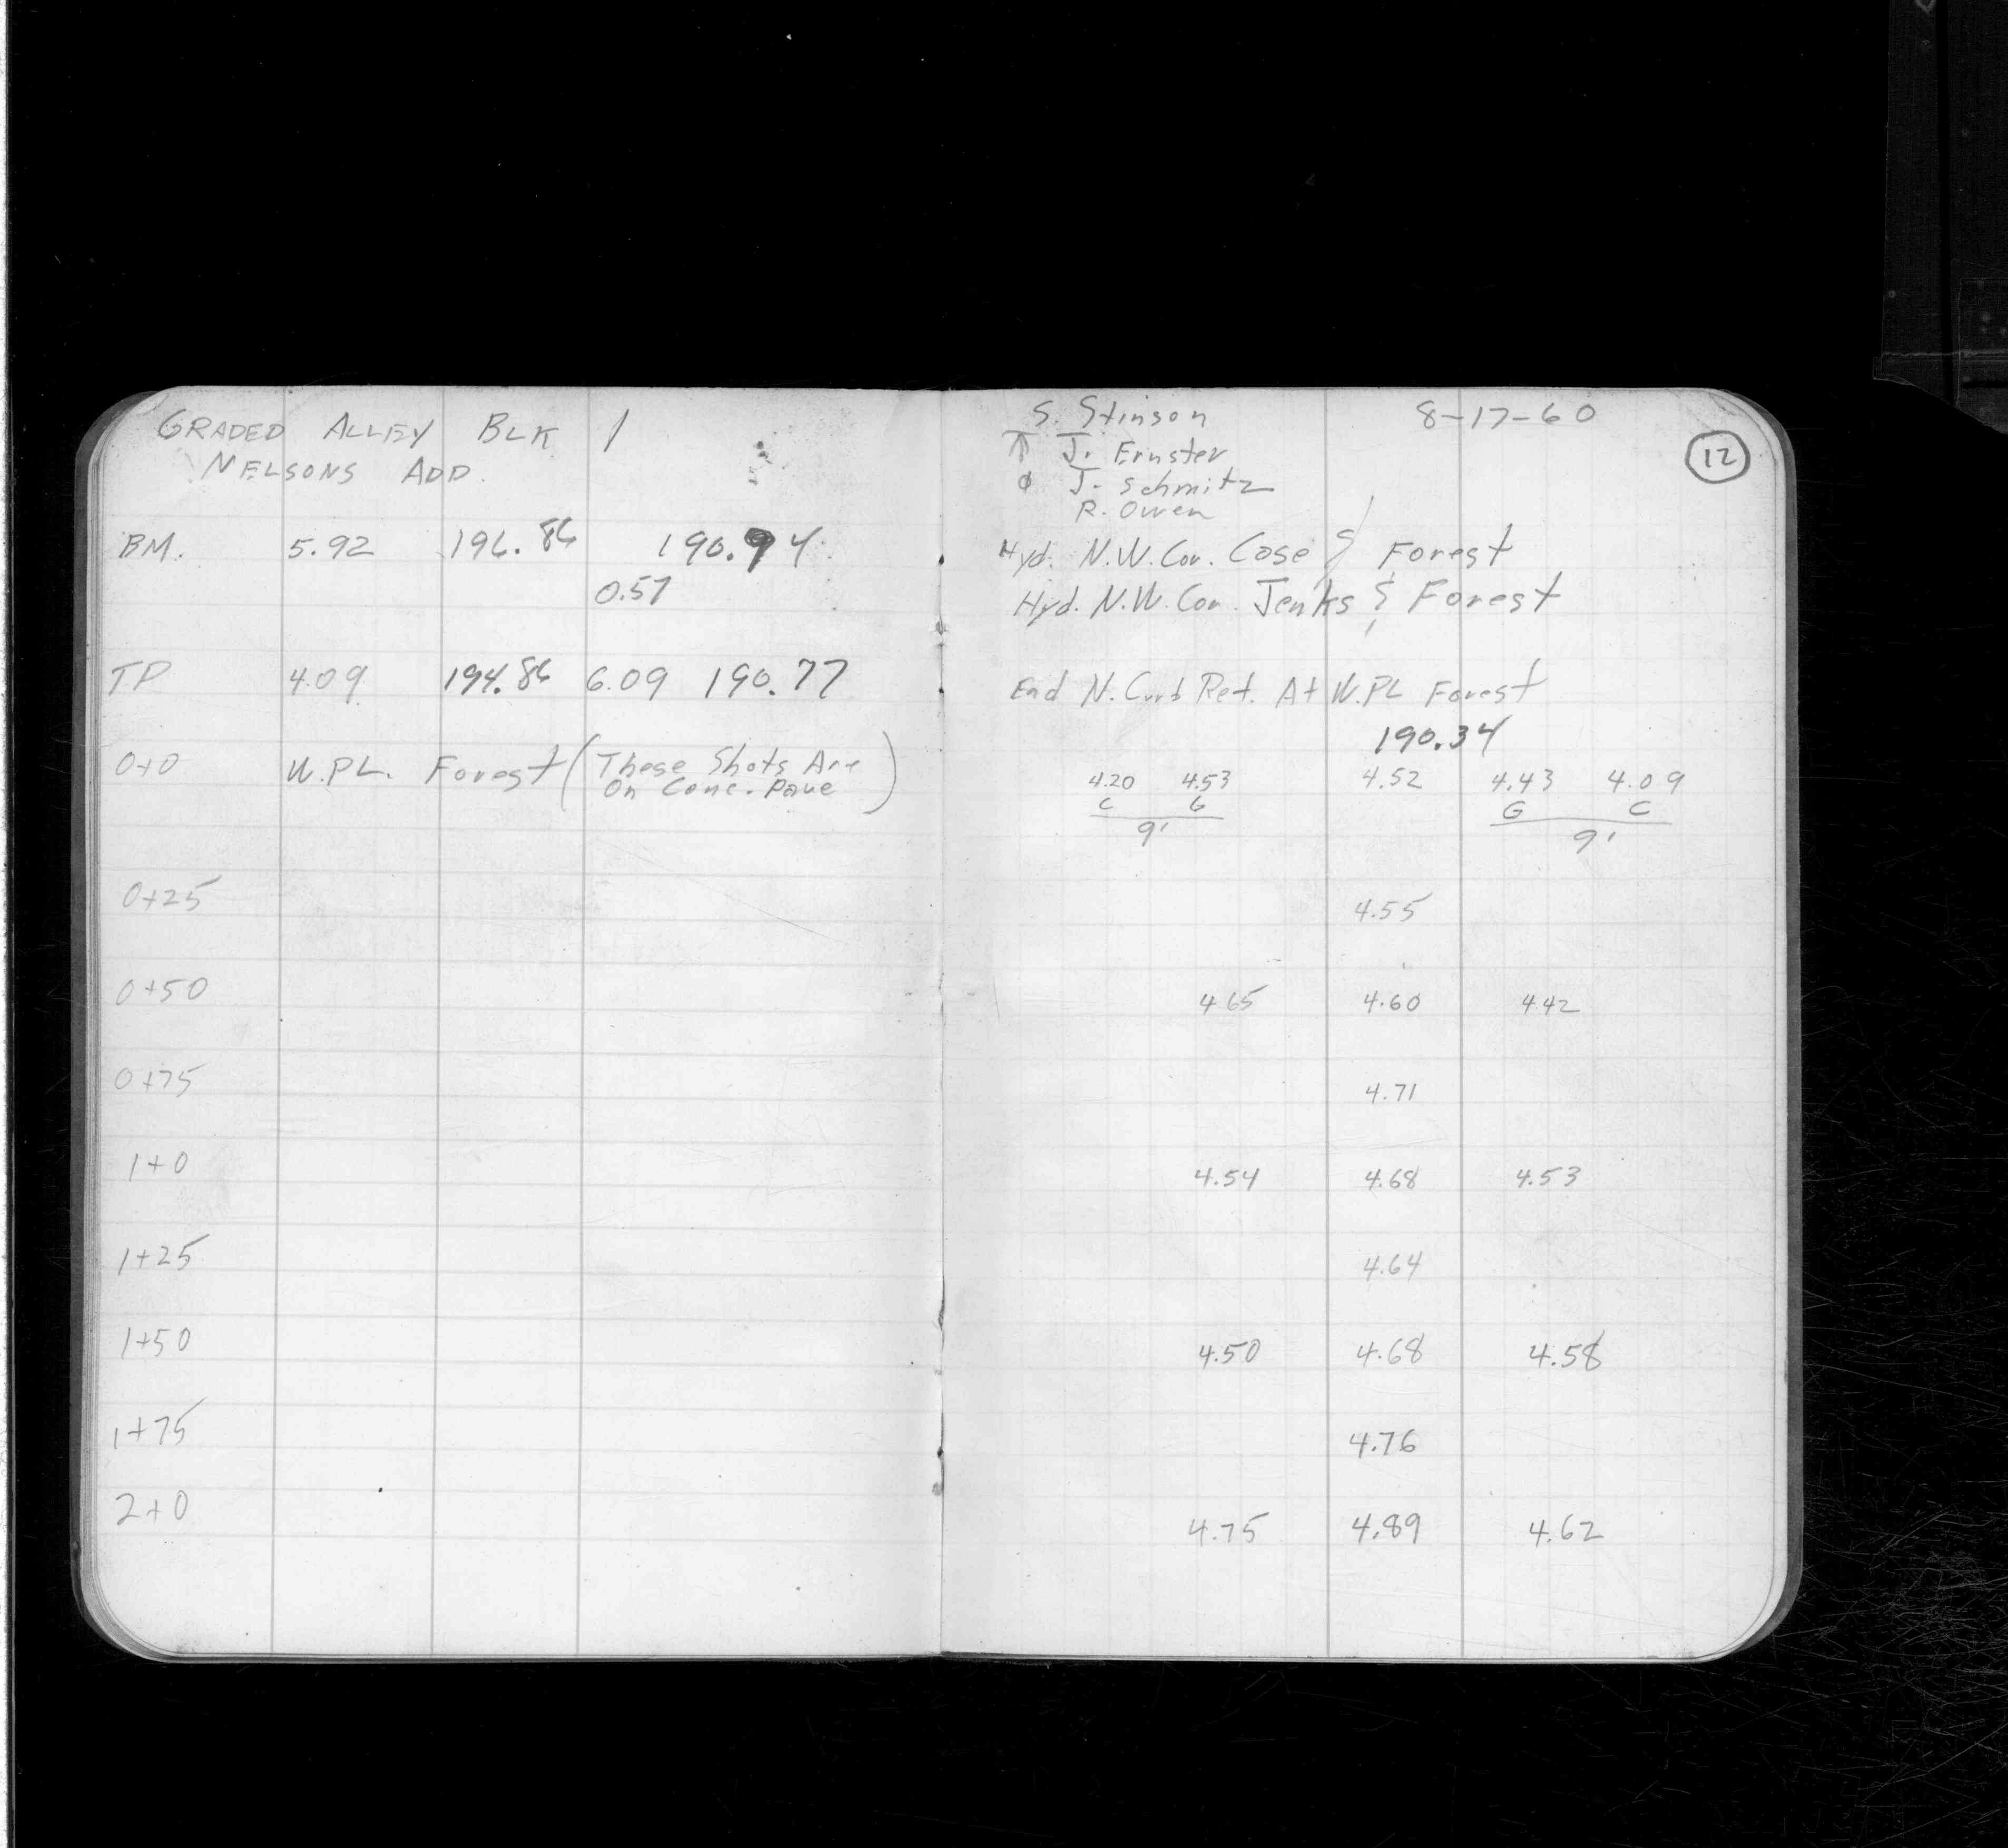 GRADED ALLEY BLK 1
NELSONS ADD.
BM. 5.92 196.86 190.94
0.57
TP 4.09 194.86 6.09 190.77
0+0 W.PL. Forest (These Shots Are
On Conc. Pave)
0+25
0+50
0+75
1+0
1+25
1+50
1+75
2+0
S. Stinson 8-17-60
J. Ernster
12
J. Schmitz
R. Owen
Hyd. N.W. Cor. Case & Forest
Hyd. N.W. Cor. Jenks & Forest
End N. Curb Ret. At W.PL Forest
190.34
4.20 4.53 4.52 4.43 4.09
C G G C
9' 9'
4.55
4.65 4.60 4.42
4.71
4.54 4.68 4.53
4.64
4.50 4.68 4.58
4.76
4.75 4.89 4.62